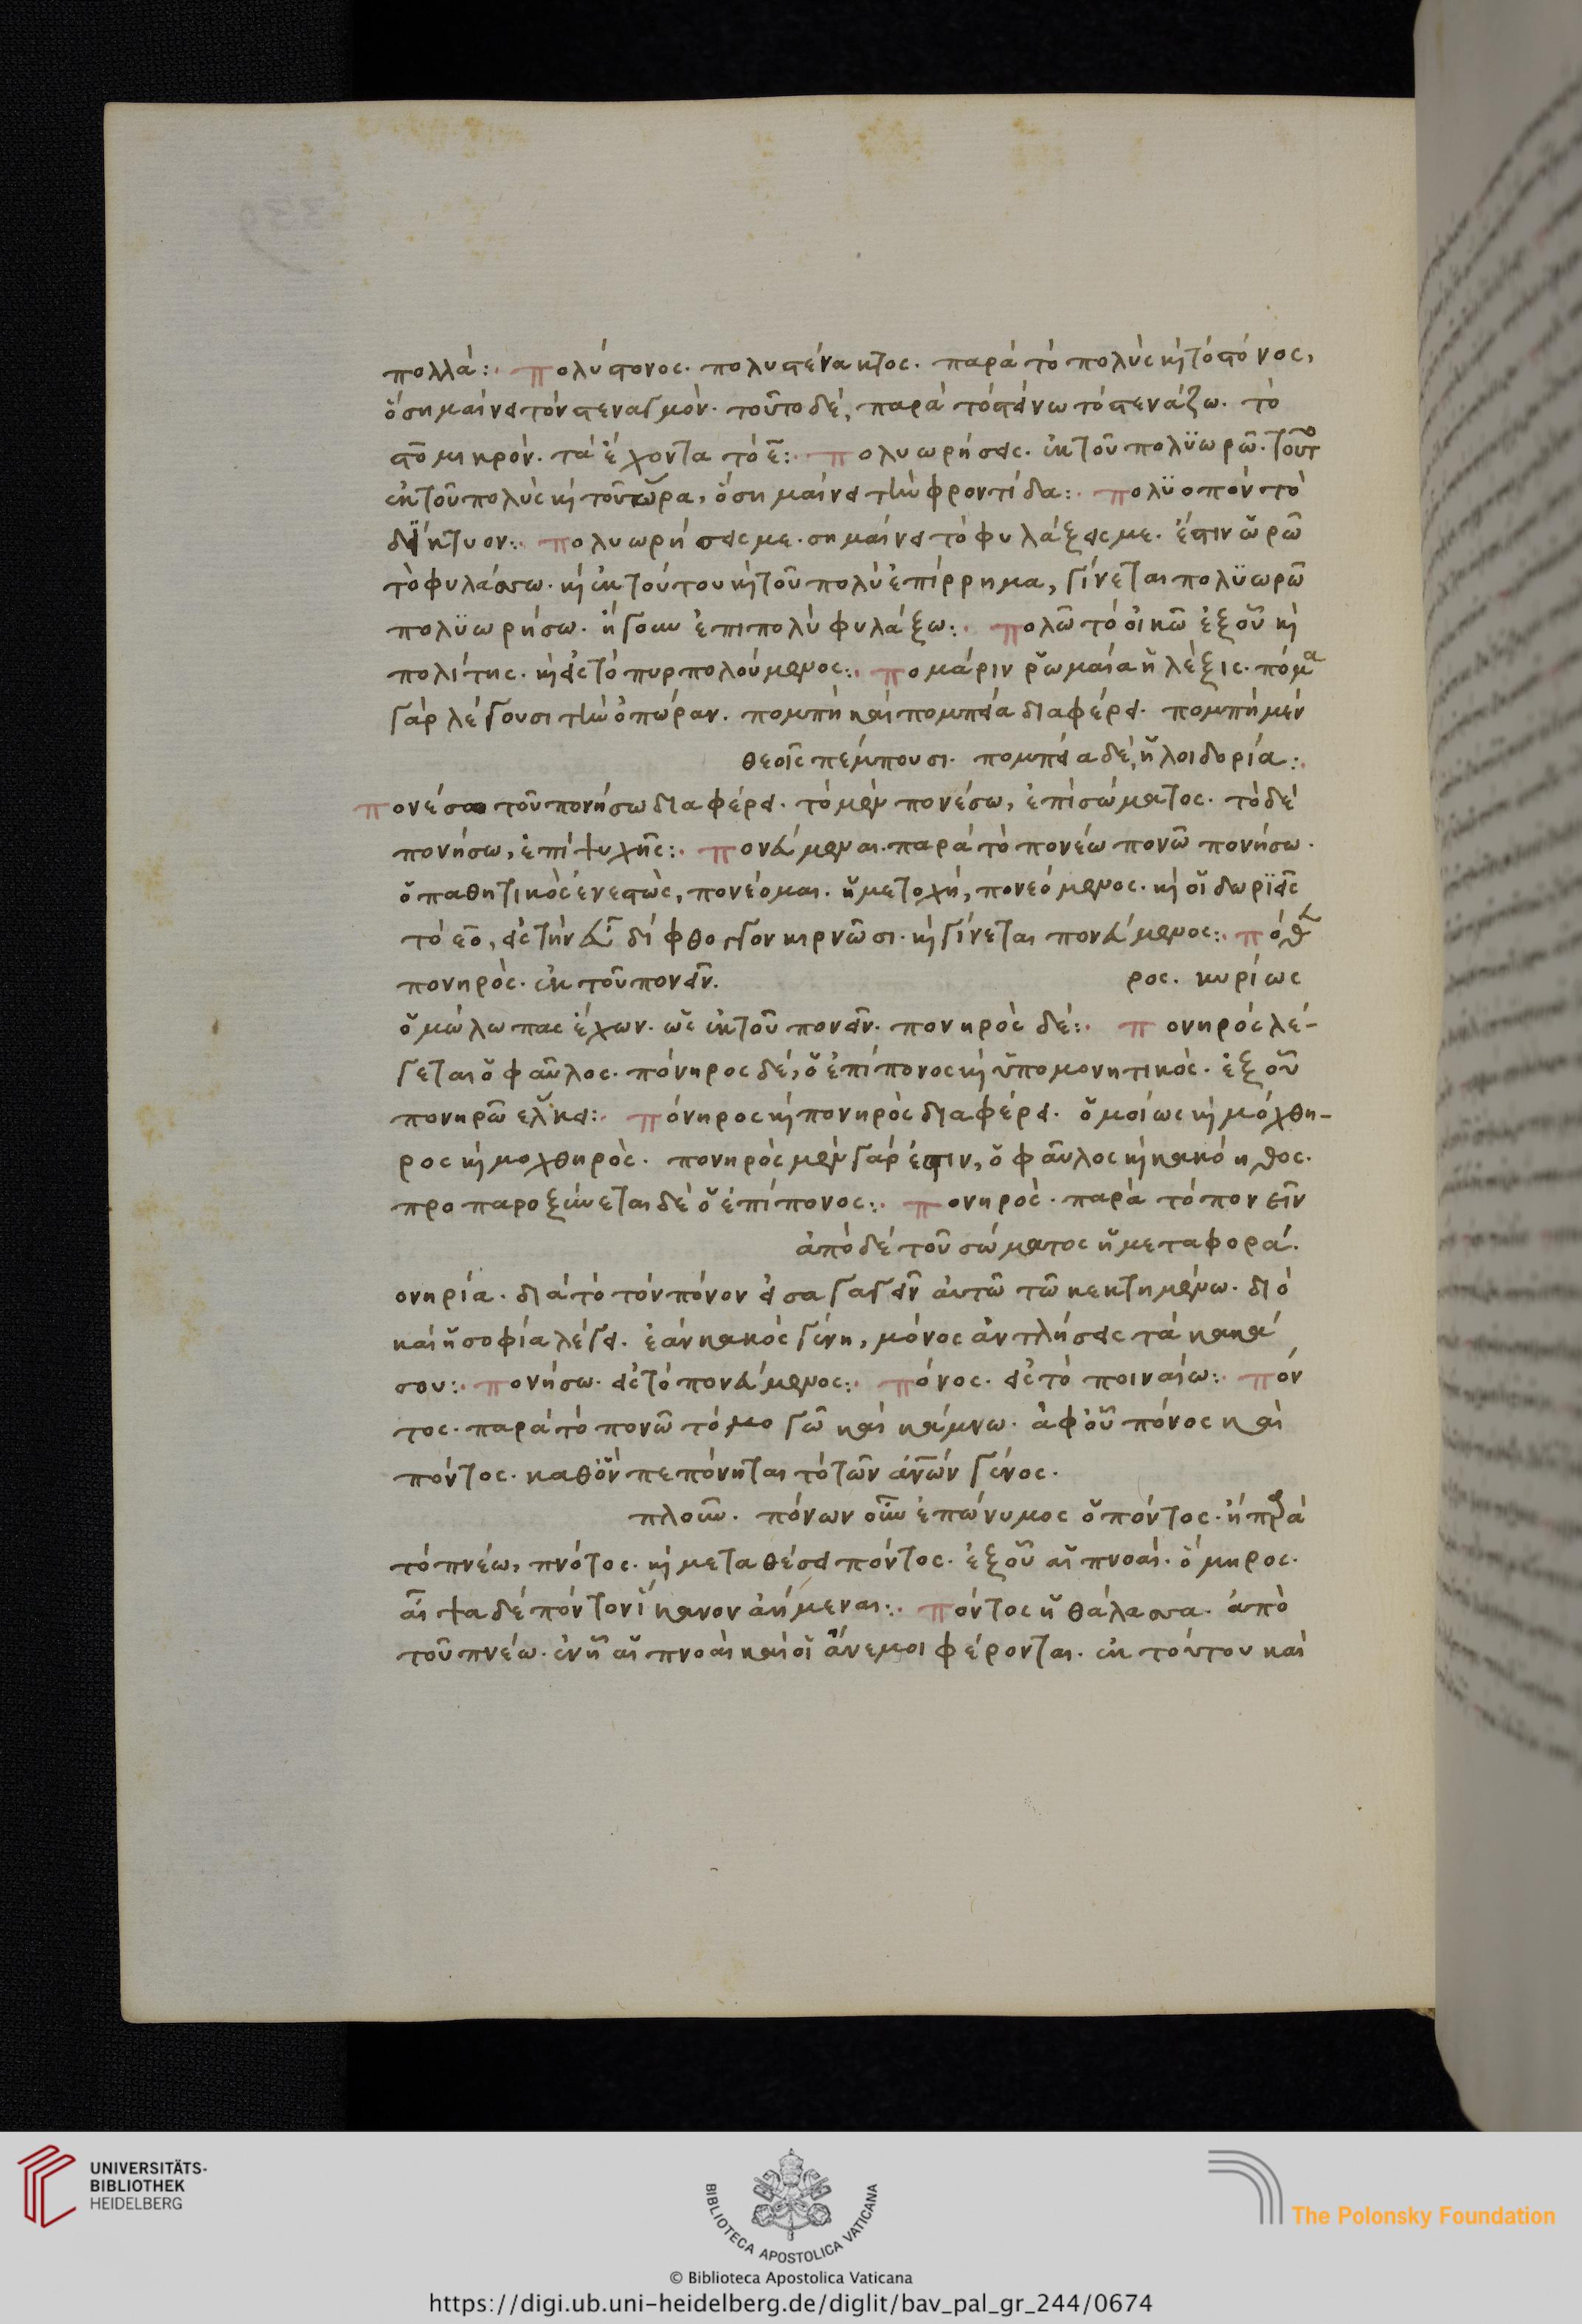 πολλά:· πολύστονος· πολυστένακτος· παρὰ τὸ πολὺς κ(αὶ) τὸ στόνος,
ὃ σημαίνει τὸν στεναγμόν· τοῦτο δὲ, παρὰ τὸ στένω τὸ στενάζω· τὸ
στο μικρόν· τὰ ἔχοντα τὸ ε:· πολυωρήσεις· ἐκ τοῦ πολϋωρῶ· τοῦτο
ἐκ τοῦ πολὺς κ(αὶ) τοῦ ὤρα, ὃ σημαίνει τὴν φροντίδα:· πολϋοπόν τὸ
δίκτυον:· πολυωρήσεις με· σημαίνει τὸ φυλάξεις με· ἔστιν ὠρῶ
τὸ φυλάσσω· κ(αὶ) ἐκ τούτου κ(αὶ) τοῦ πολὺ ἐπίρρημα, γίνεται πολϋωρῶ
πολϋωρήσω· ἤγουν ἐπιπολὺ φυλάξω:· πολῶ τὸ οἰκῶ ἐξ οὗ κ(αὶ)
πολίτης· κ(αὶ) εἰς τὸ πυρπολούμενος:· πομάριν ῥωμαία ἡ λέξις· πόμα
γὰρ λέγουσι τὴν ὀπώραν· πομπὴ καὶ πομπεία διαφέρει· πομπὴ μὲν
θεοῖς πέμπουσι· πομπεία δὲ, ἡ λοιδορία:·
πονέσω τοῦ πονήσω διαφέρει· τὸ μὲν πονέσω, ἐπὶ σώματος· τὸ δὲ
πονήσω, ἐπὶ ψυχῆς:· πονεύμεναι· παρὰ τὸ πονέω πονῶ πονήσω·
ὁ παθητικὸς ἐνεστὼς, πονέομαι· ἡ μετοχὴ, πονεόμενος· κ(αὶ) οἱ δωριεῖς
τὸ εο, εἰς τὴν ευ δίφθογγον κιρνῶσι· κ(αὶ) γίνεται πονεύμενος:·
πονηρός· ἐκ τοῦ πονεῖν· ρος· κυρίως
ὁ μώλωπας ἔχων· ὡς ἐκ τοῦ πονεῖν· πονηρὸς δέ:· πονηρός λέ-
γεται ὁ φαῦλος· πόνηρος δὲ, ὁ ἐπίπονος κ(αὶ) ὑπομονητικός· ἐξ οὗ
πονηρῶ ἕλκει:· πόνηρος κ(αὶ) πονηρὸς διαφέρει· ὁμοίως κ(αὶ) μόχθη-
ρος κ(αὶ) μοχθηρός· πονηρὸς μὲν γάρ ἐστιν, ὁ φαῦλος κ(αὶ) κακόηθος·
προπαροξύνεται δὲ ὁ ἐπίπονος:· πονηρός· παρὰ τὸ πονεῖν
ἀπὸ δὲ τοῦ σώματος ἡ μεταφορά·
ονηρία· διὰ τὸ τὸν πόνον εἰσαγαγεῖν αὐτῶ τῶ κεκτημένω· διὸ
καὶ ἡ σοφία λέγει· ἐὰν κακὸς γένη, μόνος ἀντλήσεις τὰ κακά
σου:· πονήσω· εἰς τὸ πονεύμενος:· πόνος· εἰς τὸ ποιναίω:· πόν
τος· παρὰ τὸ πονῶ τὸ μογῶ καὶ κάμνω· ἀφ' οὗ πόνος καὶ
πόντος· καθ' ὃν πεπόνηται τὸ τῶν ἀνῶν γένος·
πλοῦν· πόνων οὖν ἐπώνυμος ὁ πόντος· ἢ παρὰ
τὸ πνέω, πνότος· κ(αὶ) μεταθέσει πόντος· ἐξ οὗ αἱ πνοαί· ὅμηρος·
αἶψα δὲ πόντον ἵκανον ἀήμεναι:· πόντος ἡ θάλασσα· ἀπὸ
τοῦ πνέω· ἐν ἧ αἱ πνοαὶ καὶ οἱ ἄνεμοι φέρονται· ἐκ τούτου καὶ
UNIVERSITÄTS-
BIBLIOTHEK
HEIDELBERG
BIBLIOTECA APOSTOLICA VATICANA
The Polonsky Foundation
© Biblioteca Apostolica Vaticana
https://digi.ub.uni-heidelberg.de/diglit/bav_pal_gr_244/0674